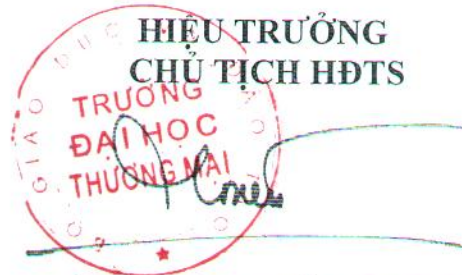 HIỆU TRƯỞNG
CHỦ TỊCH HĐTS
TRƯỜNG
ĐẠI HỌC
THƯƠNG MẠI
GIÁO DỤC